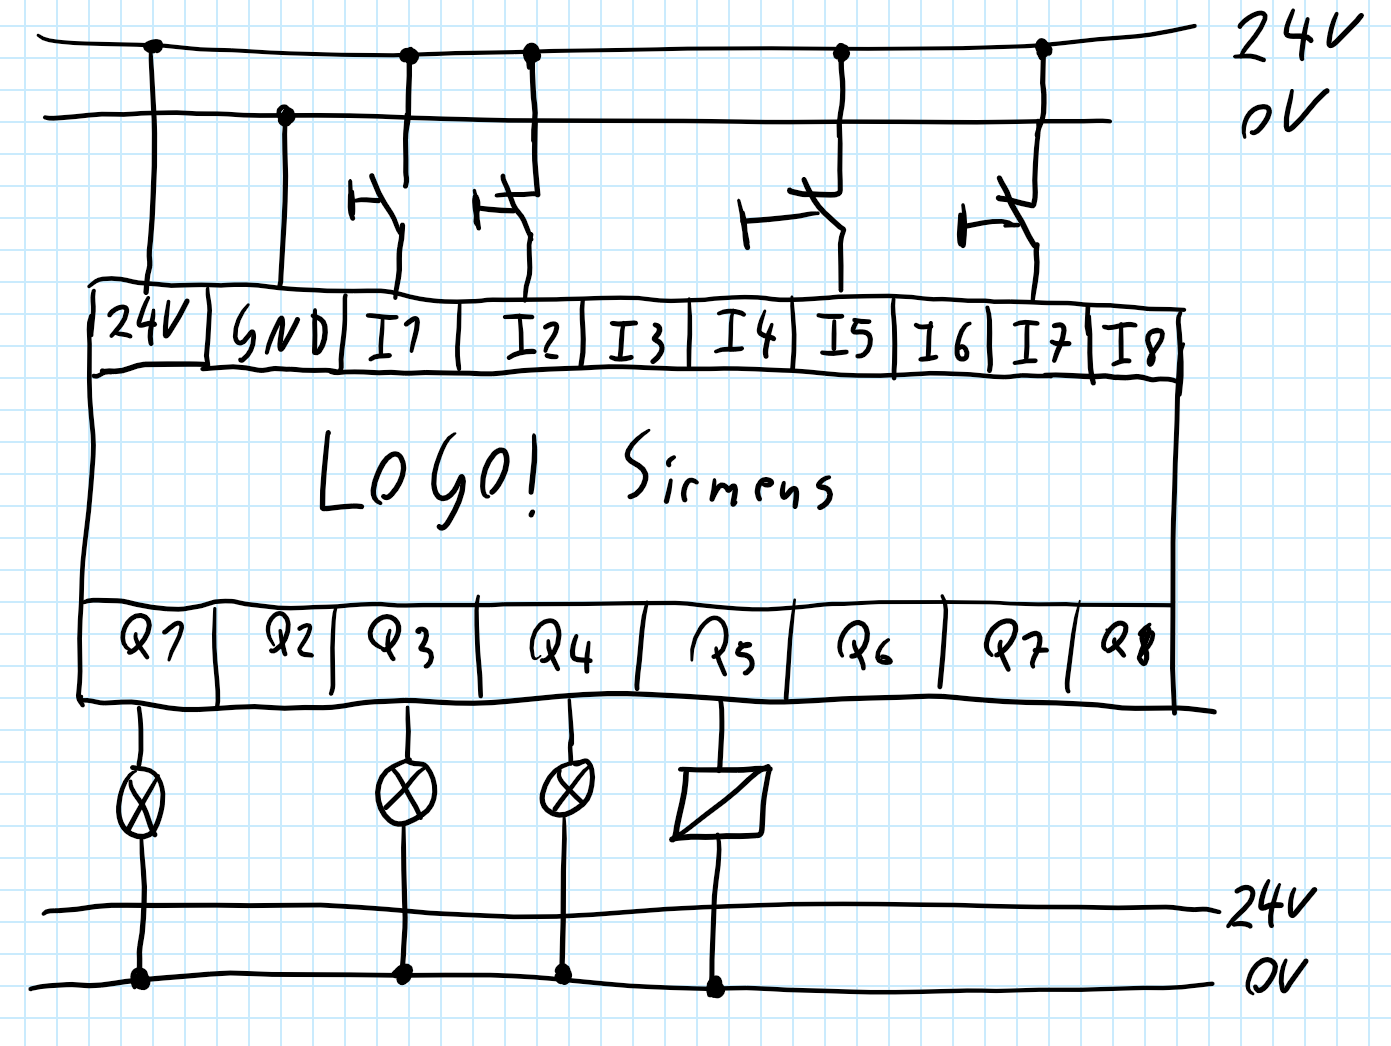 24V
0V
24V GND I1 I2 I3 I4 I5 I6 I7 I8
LOGO! Sirmens
Q1 Q2 Q3 Q4 Q5 Q6 Q7 Q8
24V
0V